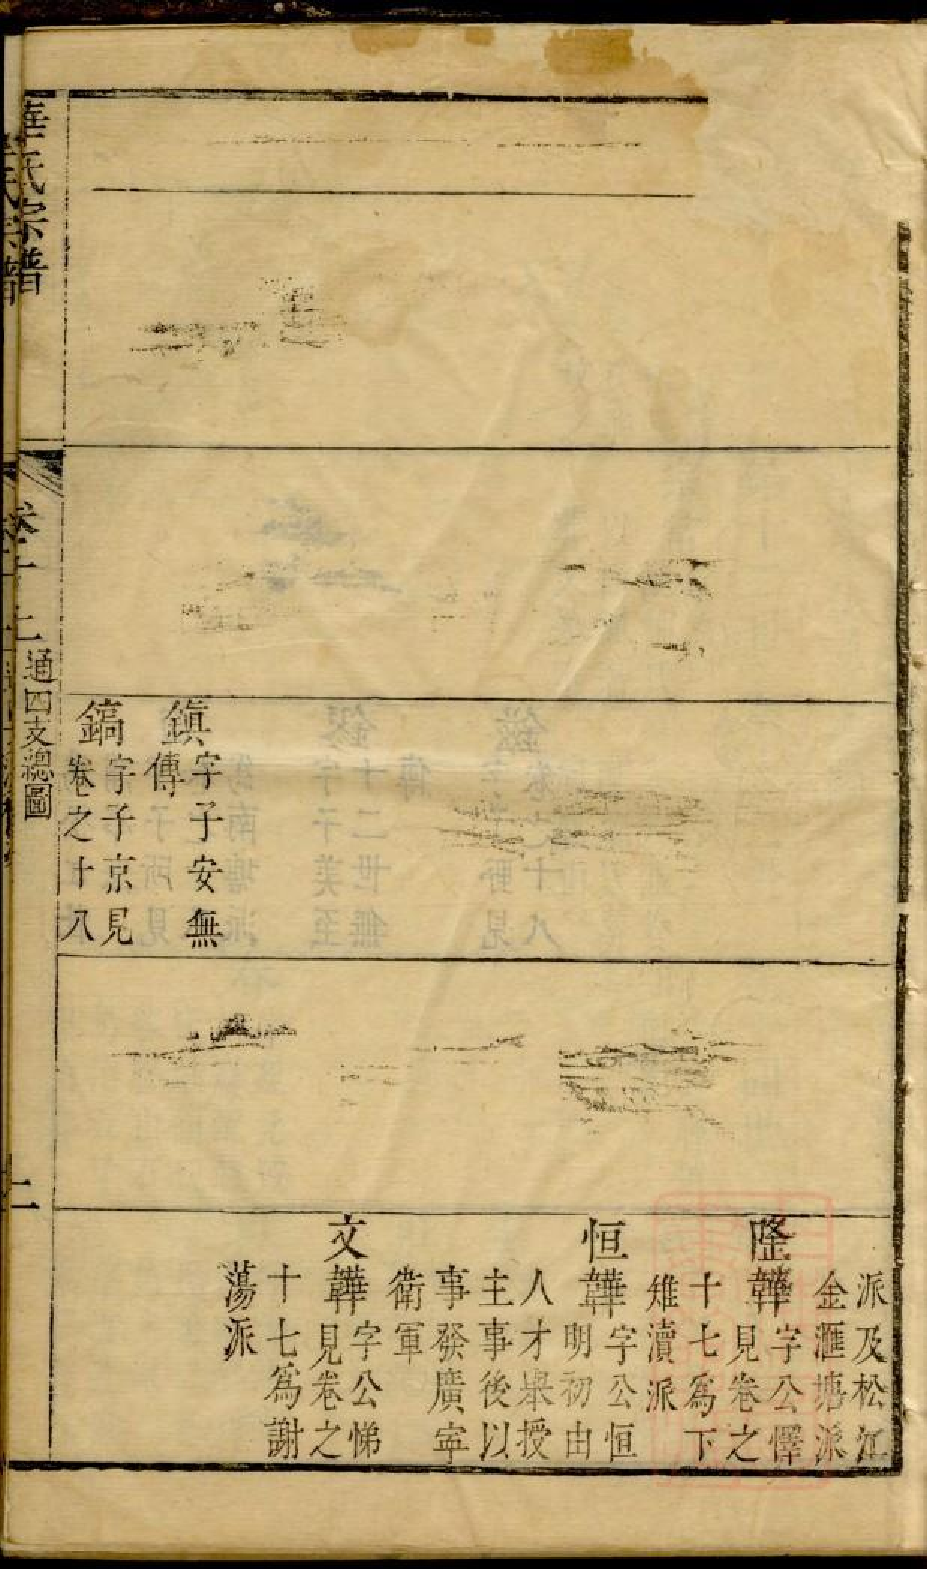 華氏宗譜
通四支總圖
鎭
字子安無
傳
鎬
字子京見
卷之十八
派及松江
金滙塘派
隆韡
字公懌
見卷之
十七爲下
雉瀆派
恒韡
字公恒
明初由
人才舉授
主事後以
事發廣寧
衛軍
文韡
字公悌
見卷之
十七爲謝
蕩派